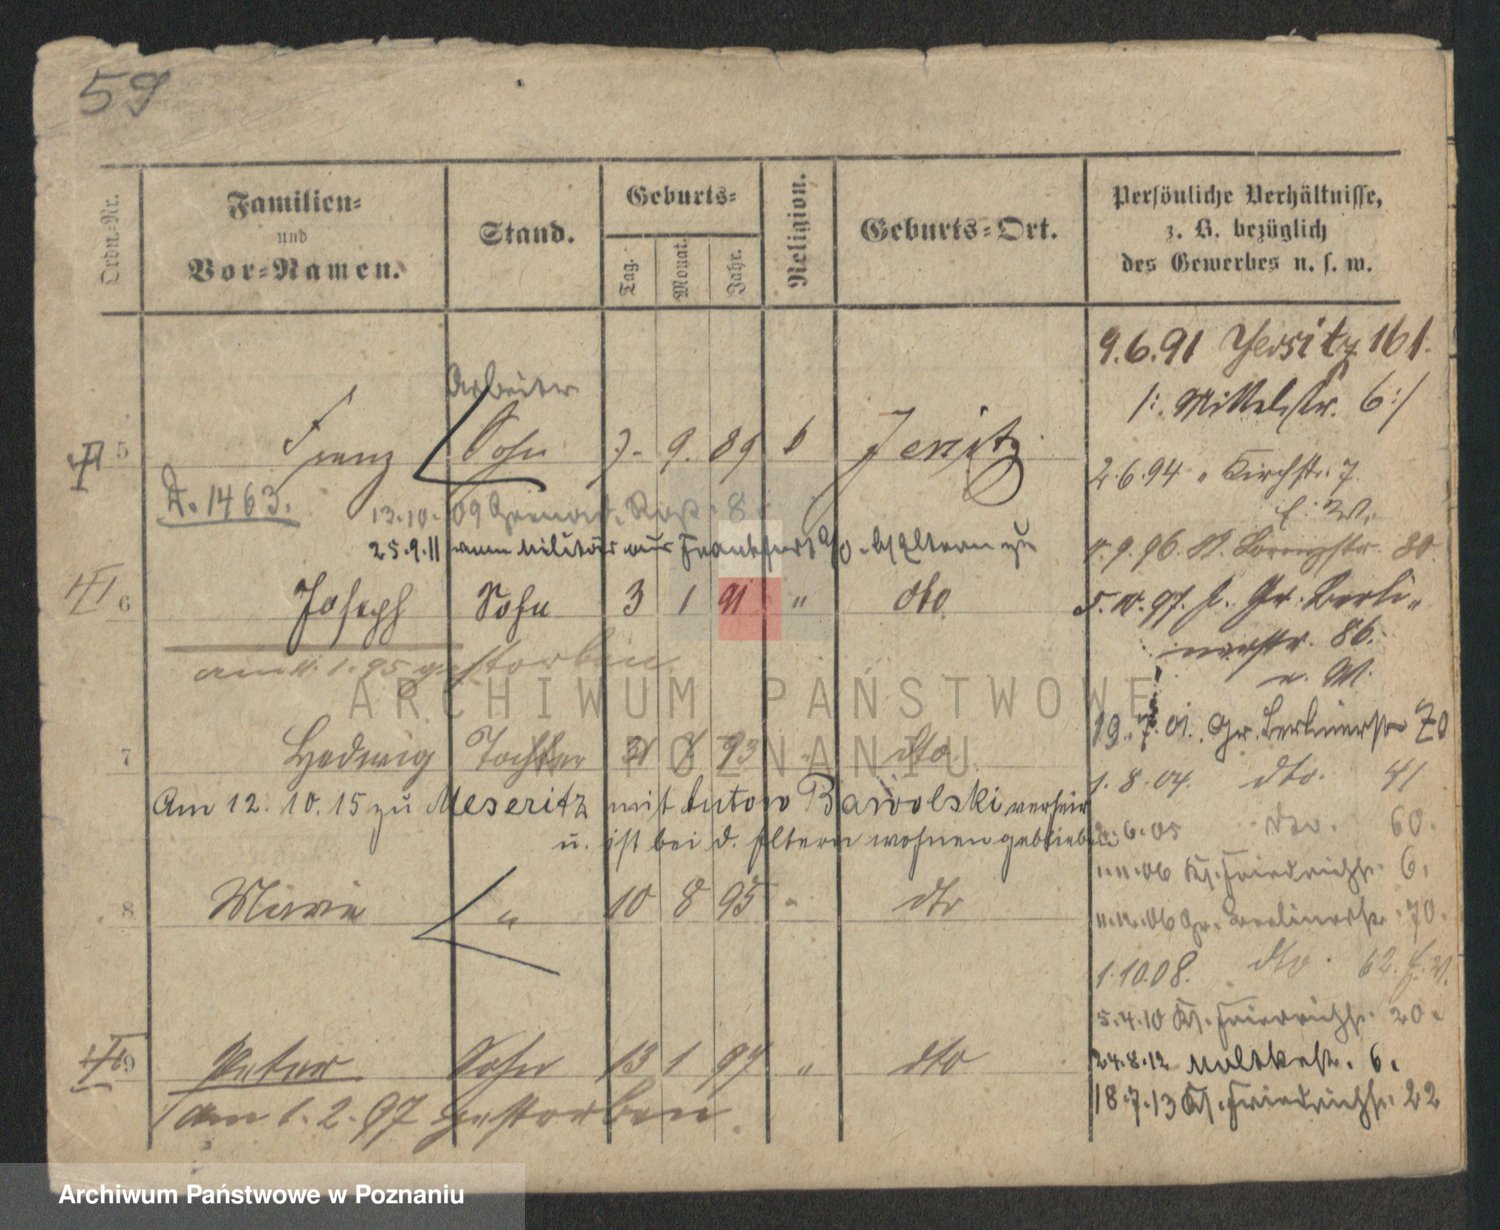 59
Ordn.-Nr.
Familien-
und
Vor-Namen.
Stand.
Geburts-
Tag.
Monat.
Jahr.
Religion.
Geburts-Ort.
Persönliche Verhältnisse,
z. B. bezüglich
des Gewerbes u. s. w.
9.6.91 Jersitz 161.
/: Mittelstr. 6 :/
Arbeiter
5 Franz Sohn 7. 9. 89 k Jersitz
2.6.94 " Kirchstr. 7.
A. 1463.
13.10.09 8
25.9.11 vom Militär aus Frankfurt a/O. b/Eltern zu
80.
6 Joseph Sohn 3 1 91 " dto
5.10.97. Gr. Berli-
nerstr. 86.
am 11.1.95 gestorben
19.7.01. Gr. Berlinerstr 70
7 Hedwig Tochter 31 8 93 " dto.
1.8.04. dto. 41
Am 12.10.15 zu Meseritz mit Anton Bawolski verheir
u. ist bei d. Eltern wohnen geblieben
6.05 dto. 60.
11.11.06 Kl. Friedrichstr. 6.
8 Marie " 10 8 95 " dto
11.12.06 Gr. Berlinerstr. 70.
1.10.08. dto. 62.
5.4.10 Kl. Friedrichstr. 20.
9 Peter Sohn 13 1 97 " dto
24.8.12 Moltkestr. 6.
am 1.2.97 gestorben.
18.7.13 Kl. Friedrichstr. 22
ARCHIWUM PAŃSTWOWE
W POZNANIU
Archiwum Państwowe w Poznaniu